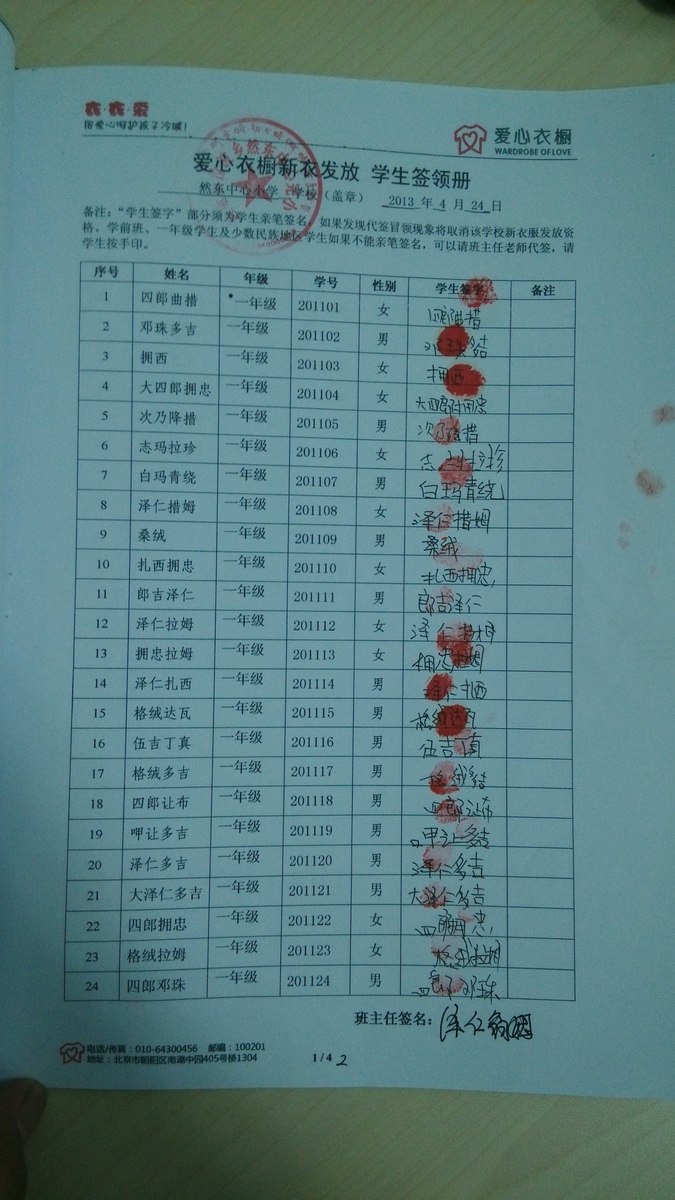 衣·衣·爱
用爱心呵护孩子冷暖!
爱心衣橱
WARDROBE OF LOVE
爱心衣橱新衣发放 学生签领册
然东中心小学 学校（盖章） 2013 年 4 月 24 日
备注：“学生签字”部分须为学生亲笔签名，如果发现代签冒领现象将取消该学校新衣服发放资
格。学前班、一年级学生及少数民族地区学生如果不能亲笔签名，可以请班主任老师代签，请
学生按手印。
序号 姓名 年级 学号 性别 学生签字 备注
1 四郎曲措 一年级 201101 女 四郎曲措
2 邓珠多吉 一年级 201102 男 邓珠多结
3 拥西 一年级 201103 女 拥西
4 大四郎拥忠 一年级 201104 女 大四郎拥忠
5 次乃降措 一年级 201105 男 次乃降措
6 志玛拉珍 一年级 201106 女 志玛拉珍
7 白玛青绕 一年级 201107 男 白玛青绕
8 泽仁措姆 一年级 201108 女 泽仁措姆
9 桑绒 一年级 201109 男 桑绒
10 扎西拥忠 一年级 201110 女 扎西拥忠
11 郎吉泽仁 一年级 201111 男 郎吉泽仁
12 泽仁拉姆 一年级 201112 女 泽仁拉姆
13 拥忠拉姆 一年级 201113 女 拥忠拉姆
14 泽仁扎西 一年级 201114 男 泽仁扎西
15 格绒达瓦 一年级 201115 男 格绒达瓦
16 伍吉丁真 一年级 201116 男 伍吉丁真
17 格绒多吉 一年级 201117 男 格绒多结
18 四郎让布 一年级 201118 男 四郎让布
19 呷让多吉 一年级 201119 男 呷让多结
20 泽仁多吉 一年级 201120 男 泽仁多吉
21 大泽仁多吉 一年级 201121 男 大泽仁多吉
22 四郎拥忠 一年级 201122 女 四郎拥忠
23 格绒拉姆 一年级 201123 女 格绒拉姆
24 四郎邓珠 一年级 201124 男 四郎邓珠
班主任签名：泽仁
电话/传真：010-64300456 邮编：100201
地址：北京市朝阳区南湖中园405号楼1304
1 / 4 2